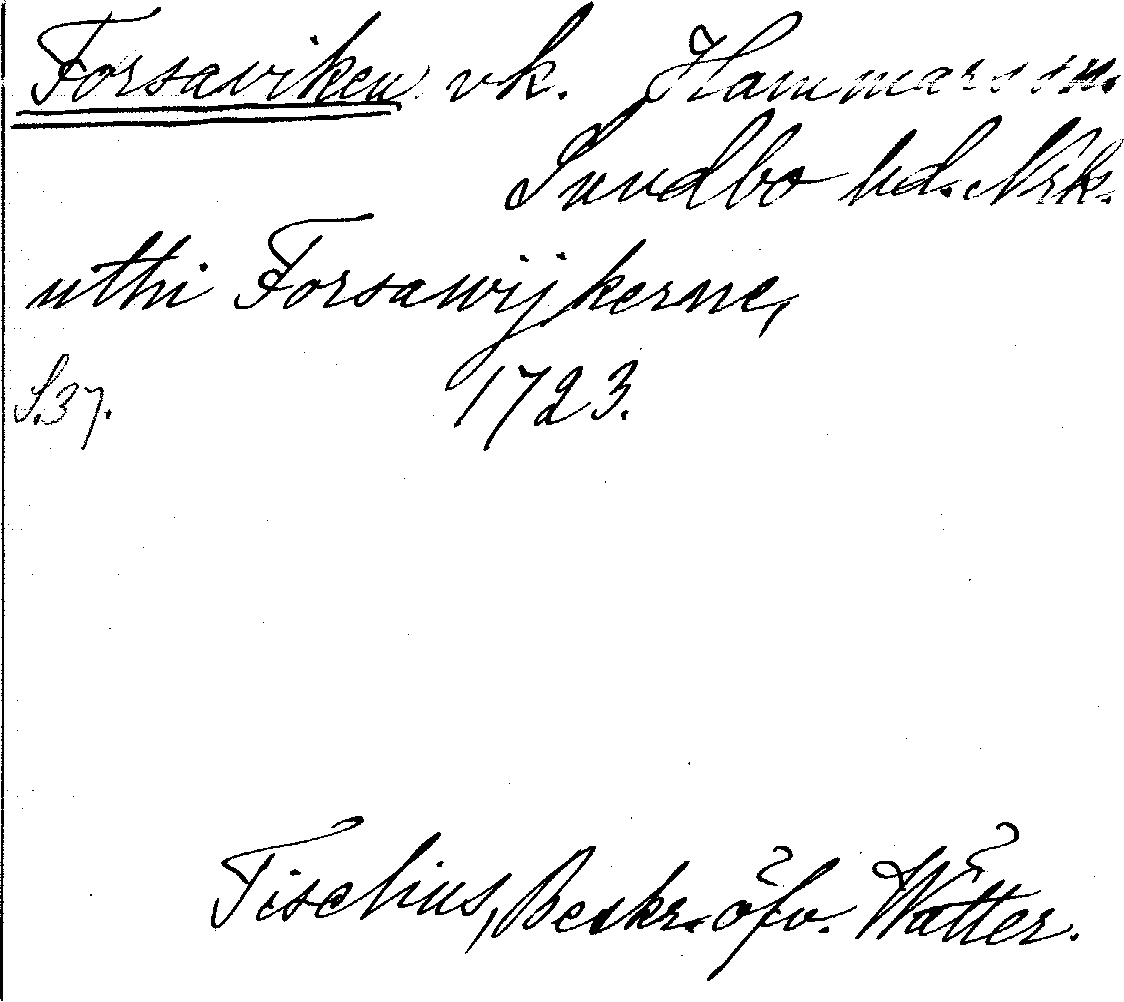 Forsaviken vk. Hammars sn.
Sundbo hd. Nrk.
uthi Forsawijkerne,
S.37. 1723.
Tiselius, Beskr. öfv. Wätter.